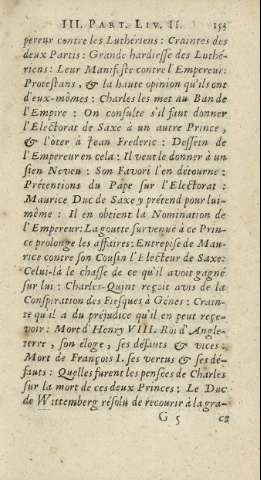 III. PART. LIV. II. 153
pereur contre les Luthériens : Craintes des
deux Partis : Grande hardiesse des Luthé-
riens : Leur Manifeste contre l'Empereur:
Protestans, & la haute opinion qu'ils ont
d'eux-mêmes : Charles les met au Ban de
l'Empire : On consulte s'il faut donner
l'Electorat de Saxe à un autre Prince,
& l'ôter à Jean Frederic : Dessein de
l'Empereur en cela : Il veut le donner à un
sien Neveu : Son Favori l'en détourne :
Prétentions du Pape sur l'Electorat :
Maurice Duc de Saxe y prétend pour lui-
même : Il en obtient la Nomination de
l'Empereur: La goutte survenuë à ce Prin-
ce prolonge les affaires: Entreprise de Mau-
rice contre son Cousin l'Electeur de Saxe:
Celui-là le chasse de ce qu'il avoit gagné
sur lui : Charles-Quint reçoit avis de la
Conspiration des Fiesques à Gênes : Crain-
te qu'il a du préjudice qu'il en peut reçe-
voir : Mort d'Henry VIII. Roi d'Angle-
terre, son éloge, ses défauts & vices:
Mort de François I. ses vertus & ses dé-
fauts : Quelles furent les pensées de Charles
sur la mort de ces deux Princes : Le Duc
de Wittemberg résolu de recourir à la gra-
G 5 ce